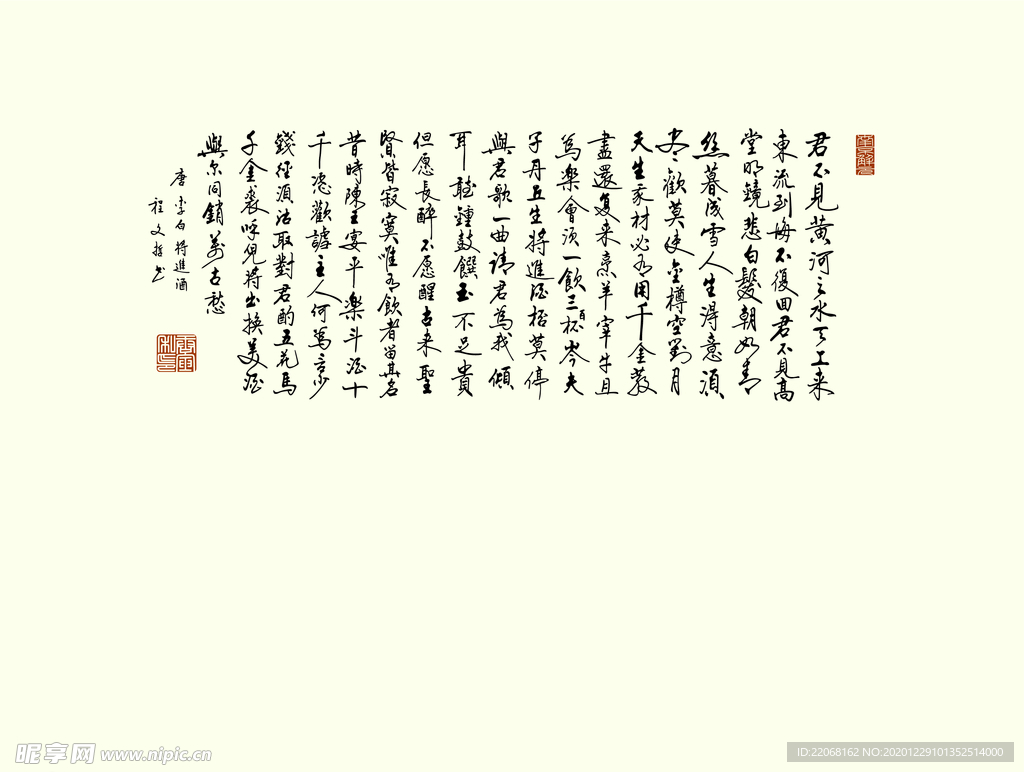 君不見黄河之水天上来
東流到海不復回君不見高
堂明鏡悲白髮朝如青
絲暮成雪人生得意須
尽歡莫使金樽空對月
天生我材必有用千金散
盡還复来烹羊宰牛且
為樂會須一飲三百杯岑夫
子丹丘生將進酒杯莫停
與君歌一曲請君為我傾
耳聽鐘鼓饌玉不足貴
但愿長醉不愿醒古来聖
賢皆寂寞唯有飲者留其名
昔時陳王宴平樂斗酒十
千恣歡謔主人何為言少
錢徑須沽取對君酌五花馬
千金裘呼兒将出換美酒
與尔同銷萬古愁
唐李白將進酒
程文哲书
昵享网 www.nipic.cn
ID:22068162 NO:20201229101352514000